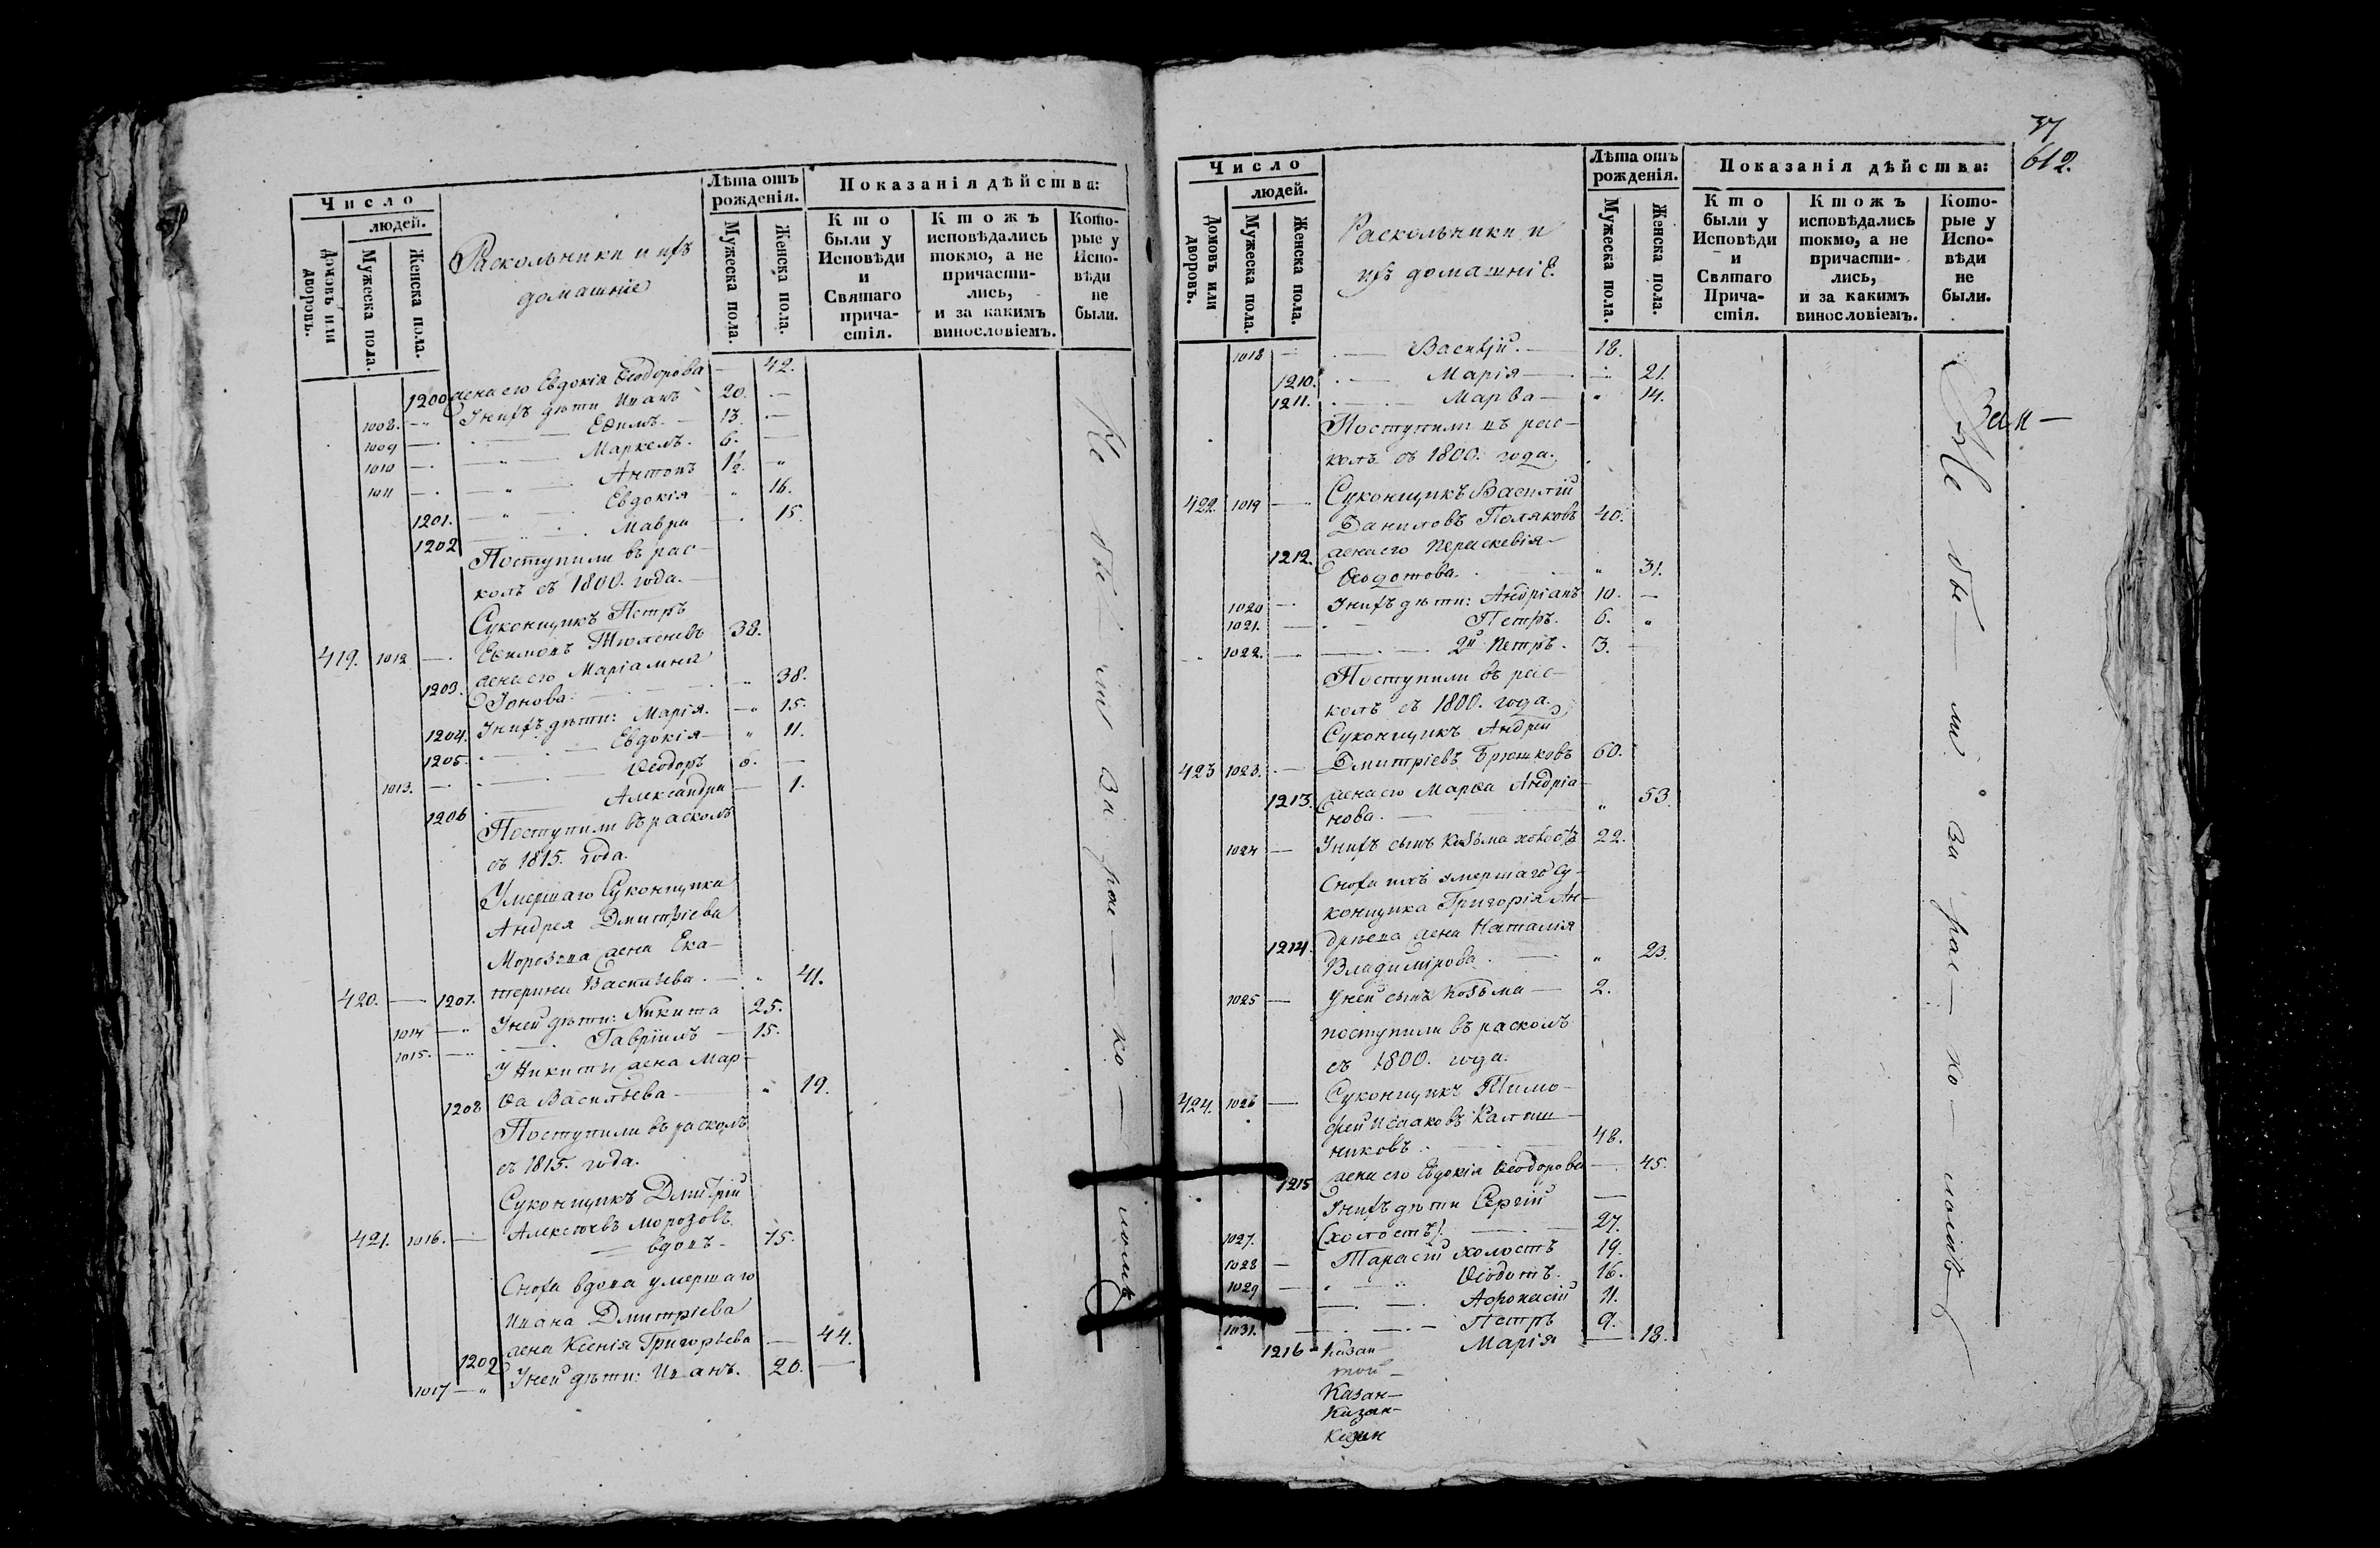 Число
людей.
Домовъ или дворовъ.
Мужеска пола.
Женска пола.
Раскольники и ихъ
домашніе
Лѣта отъ рожденія.
Мужеска пола.
Женска пола.
Показанія дѣйства:
Кто были у Исповѣди и Святаго причастія.
Ктожъ исповѣдались токмо, а не причастились, и за какимъ винословіемъ.
Которые у Исповѣди не были.
1200 жена его Евдокія Ѳеодорова — 42.
1008. — У нихъ дѣти Иванъ 20. —
1009 — Еѳимъ. 13. —
1010 — Маркелъ. 6. —
1011 — Антонъ 1½. „
1201. Евдокія „ 16.
1202 Мавра — 15.
Поступили въ рас-
колъ съ 1800. года. —
Суконщикъ Петръ
419. 1012 — Еѳимовъ Тюленевъ 38.
1203. жена его Маріамна
Іонова. „ 38.
1204. У нихъ дѣти: Марія. — 15.
1205. Евдокія — „ 11.
1013. — Ѳеодоръ 6. —
1206 Александра — 1.
Поступили въ расколъ
съ 1815. года.
Умершаго Суконщика
Андрея Дмитріева
Морозова жена Ека-
420. — 1207. терина Васильева. — „ 41.
1014 — У ней дѣти: Никита 25.
1015. — Гавріилъ — 15.
У Никиты жена Мар-
1208 ѳа Васильева — „ 19.
Поступили въ расколъ
съ 1815. года.
Суконщикъ Дмитрій
421. 1016. — Алексѣевъ Морозовъ
— вдовъ — 75.
Сноха вдова умершаго
Ивана Дмитріева
1209 жена Ксенія Григорьева — 44.
1017 — „ У ней дѣти: Иванъ. 20. —
Не бы ли за рас — ко — ломъ
37
612.
Число
людей.
Домовъ или дворовъ.
Мужеска пола.
Женска пола.
Раскольники и
ихъ домашніе.
Лѣта отъ рожденія.
Мужеска пола.
Женска пола.
Показанія дѣйства:
Кто были у Исповѣди и Святаго Причастія.
Ктожъ исповѣдались токмо, а не причастились, и за какимъ винословіемъ.
Которые у Исповѣди не были.
1018 — Василій. — 18.
1210. Марія — 21.
1211. Марѳа — „ 14.
Поступили въ рас-
колъ съ 1800. года.
Суконщикъ Василій
422. 1019 — Даниловъ Поляковъ 40.
1212. жена его Пераскевія
Ѳеодотова. „ 31.
1020 — У нихъ дѣти: Андріанъ 10. —
1021. — Петръ. 6. „
1022. — 2й Петръ. 3. —
Поступили въ рас-
колъ съ 1800. года.
Суконщикъ Андрей
423 1023. — Дмитріевъ Брюшковъ 60.
1213. жена его Марѳа Андріа-
нова. — „ 53.
1024 — У нихъ сынъ Козьма холостъ 22.
Сноха ихъ умершаго Су-
конщика Григорія Ан-
1214. дрѣева жена Наталія
Владимірова. „ 23.
1025 — У ней сынъ Козьма — 2.
поступили въ расколъ
съ 1800. года.
424. 1026 — Суконщикъ Тимо-
фей Исааковъ Калаш-
никовъ. 48.
1215 жена его Евдокія Ѳеодорова — 45.
У нихъ дѣти Сергій
1027. (холостъ). — 27.
1028 — Тарасій холостъ 19.
1029 — Ѳеодотъ. 16.
Аѳонасій 11.
1031. — Петръ 9.
1216 Казан Марія — 18.
той —
Казан—
Казан—
Казан
Зан —
Не бы — ли за рас — ко — ломъ